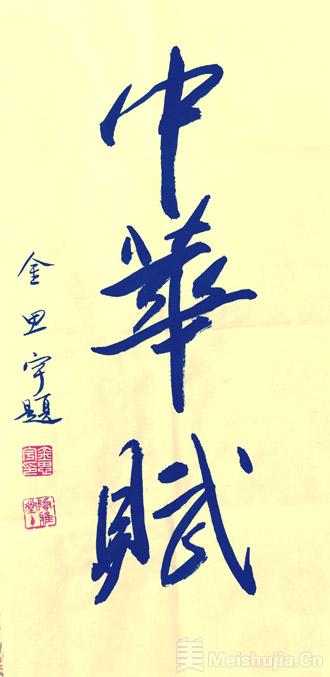 中華賦
金思宇題
美 Meishujia.Cn